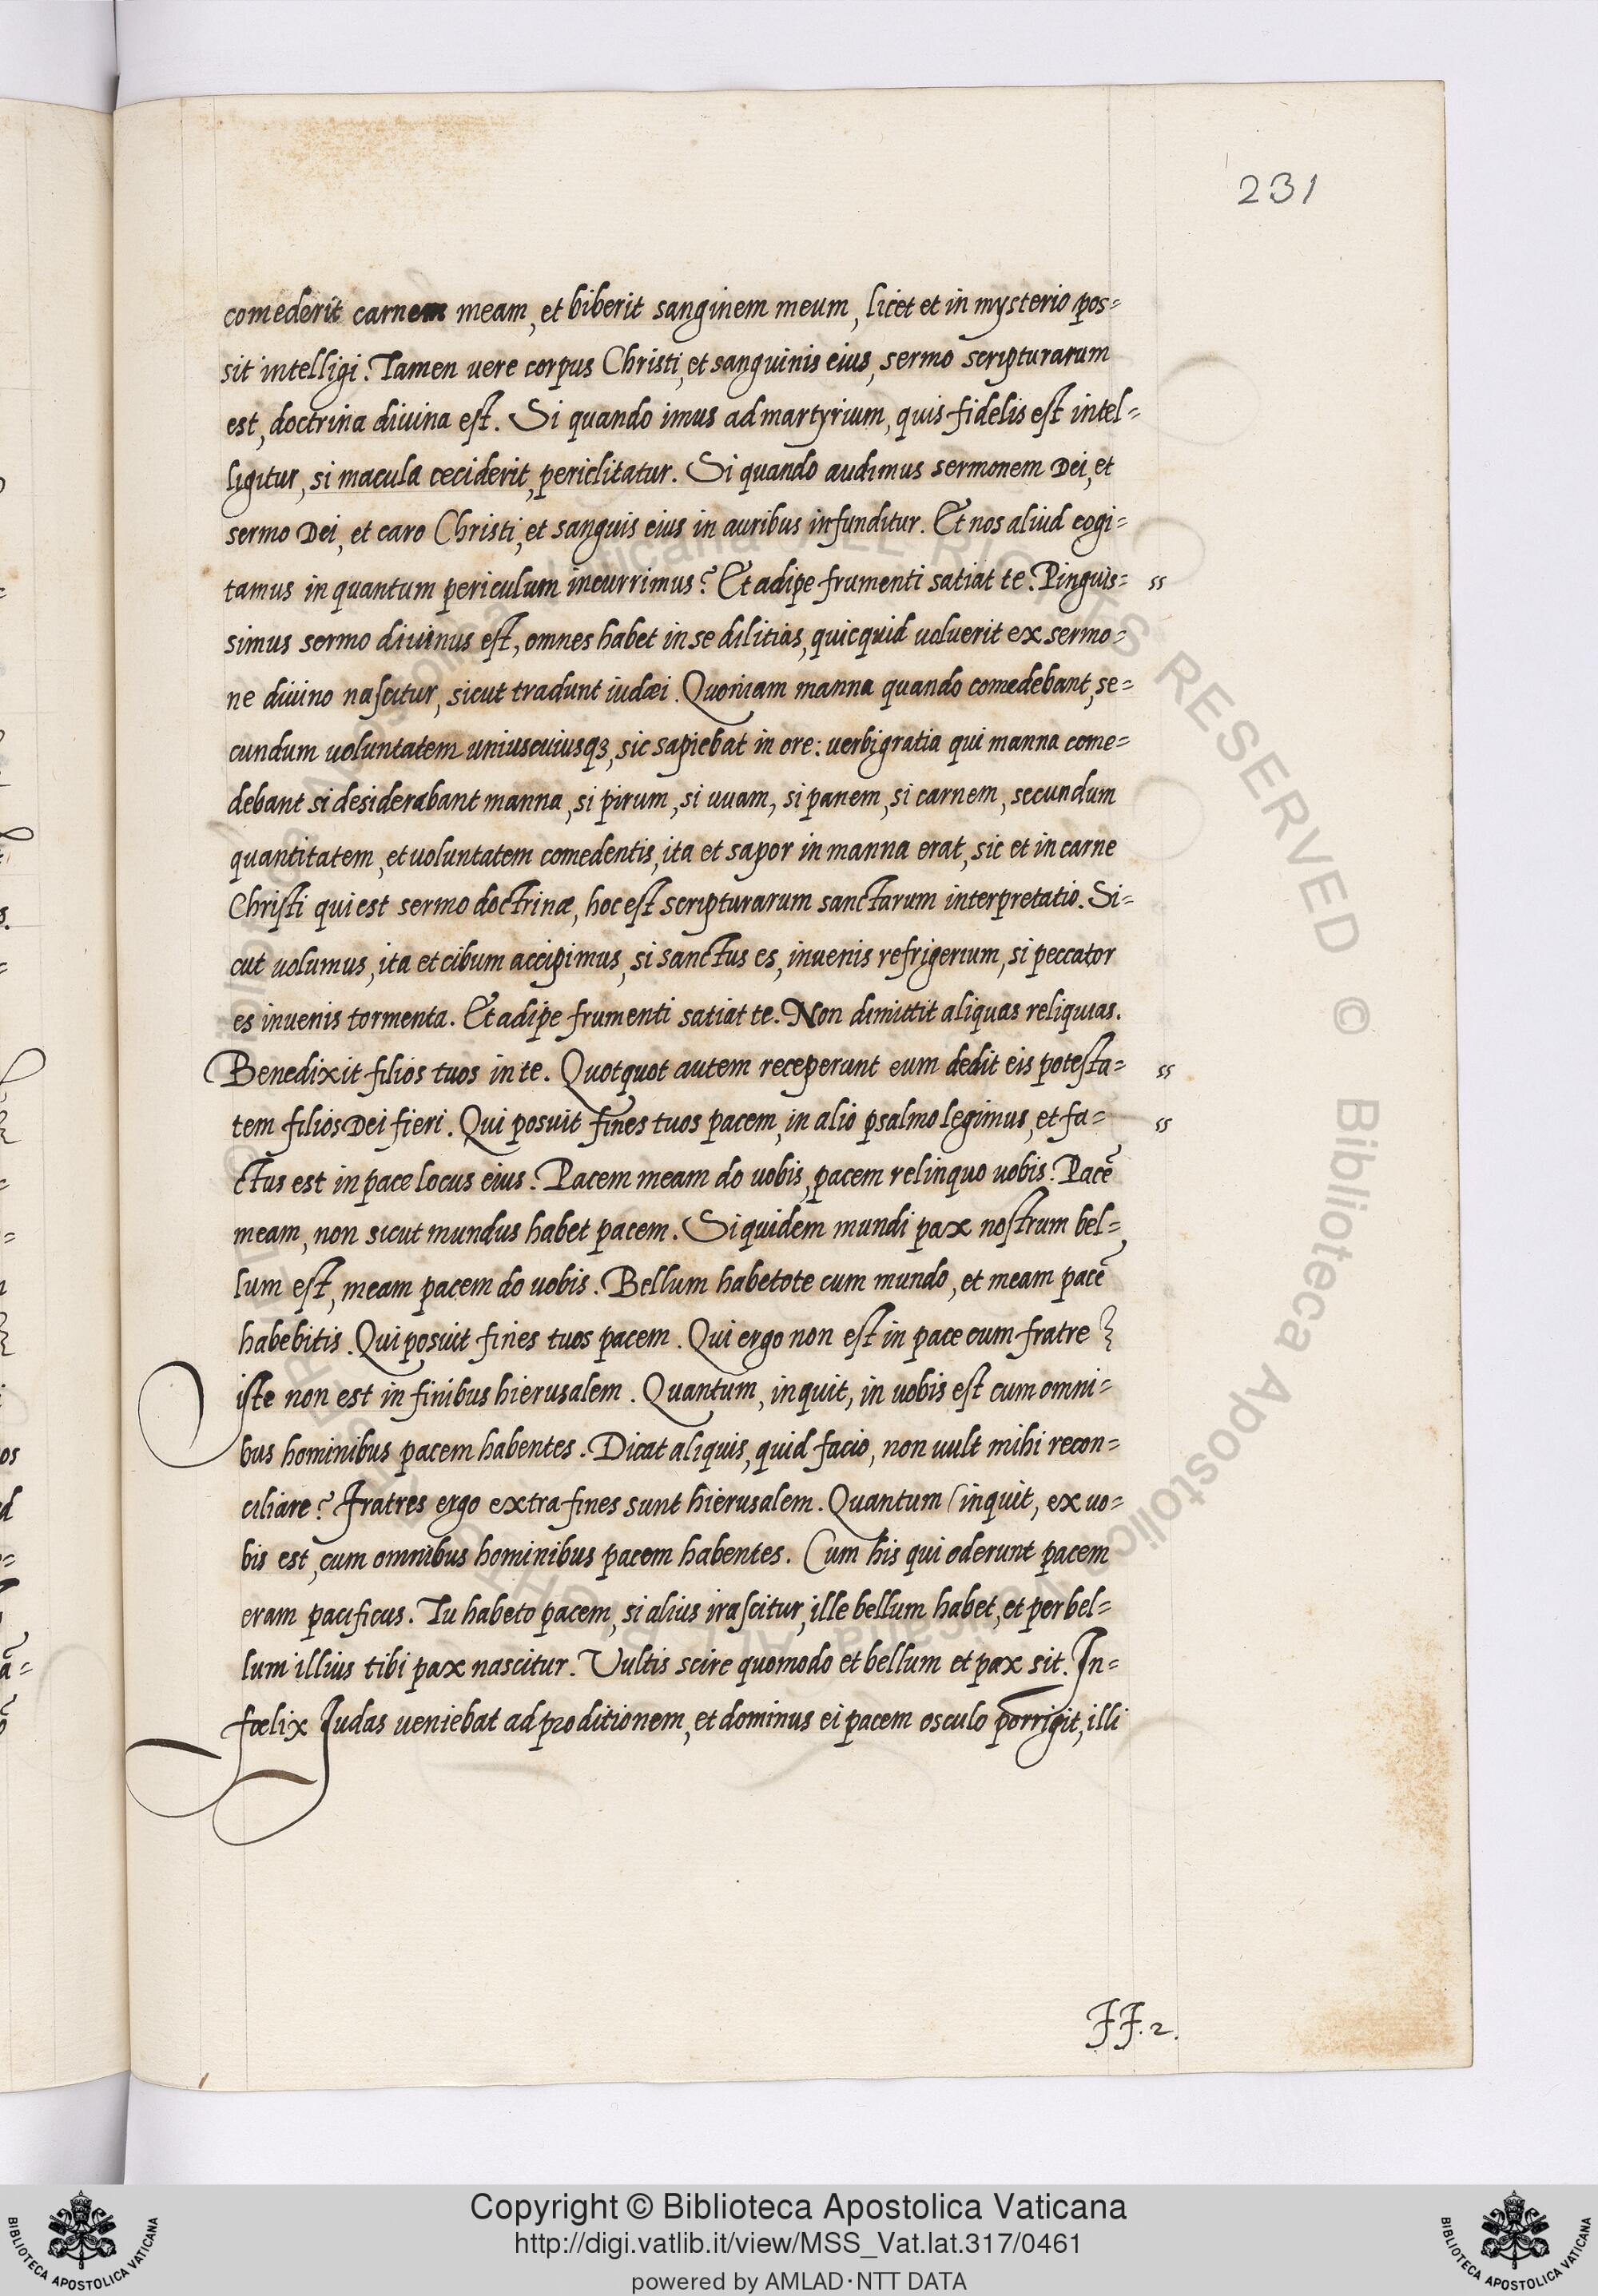 231
comederit carnem meam, et biberit sanginem meum, licet et in mysterio pos=
sit intelligi. Tamen uere corpus Christi, et sanguinis eius, sermo scripturarum
est, doctrina diuina est. Si quando imus ad martyrium, quis fidelis est intel=
ligitur, si macula ceciderit, periclitatur. Si quando audimus sermonem Dei, et
sermo Dei, et caro Christi, et sanguis eius in auribus infunditur. Et nos aliud cogi=
tamus in quantum periculum incurrimus? Et adipe frumenti satiat te. Pinguis= ss
simus sermo diuinus est, omnes habet in se dilitias, quicquid uoluerit ex sermo=
ne diuino nascitur, sicut tradunt iudæi. Quoniam manna quando comedebant, se=
cundum uoluntatem uniuscuiusqꝫ, sic sapiebat in ore: uerbigratia qui manna come=
debant si desiderabant manna, si pirum, si uuam, si panem, si carnem, secundum
quantitatem, et uoluntatem comedentis, ita et sapor in manna erat, sic et in carne
Christi qui est sermo doctrinæ, hoc est scripturarum sanctarum interpretatio. Si=
cut uolumus, ita et cibum accipimus, si sanctus es, inuenis refrigerium, si peccator
es inuenis tormenta. Et adipe frumenti satiat te. Non dimittit aliquas reliquias.
Benedixit filios tuos in te. Quotquot autem receperunt eum dedit eis potesta= ss
tem filios Dei fieri. Qui posuit fines tuos pacem, in alio psalmo legimus, et fa= ss
ctus est in pace locus eius. Pacem meam do uobis, pacem relinquo uobis. Pacē
meam, non sicut mundus habet pacem. Siquidem mundi pax nostrum bel=
lum est, meam pacem do uobis. Bellum habetote cum mundo, et meam pacē
habebitis. Qui posuit fines tuos pacem. Qui ergo non est in pace cum fratre
iste non est in finibus hierusalem. Quantum, inquit, in uobis est cum omni=
bus hominibus pacem habentes. Dicat aliquis, quid facio, non uult mihi recon=
ciliare? Fratres ergo extra fines sunt hierusalem. Quantum (inquit, ex uo=
bis est, cum omnibus hominibus pacem habentes. Cum his qui oderunt pacem
eram pacificus. Tu habeto pacem, si alius irascitur, ille bellum habet, et per bel=
lum illius tibi pax nascitur. Vultis scire quomodo et bellum et pax sit. In=
fœlix Judas ueniebat ad proditionem, et dominus ei pacem osculo porrigit, illi
FF. 2.
Copyright © Biblioteca Apostolica Vaticana
http://digi.vatlib.it/view/MSS_Vat.lat.317/0461
powered by AMLAD·NTT DATA
BIBLIOTECA APOSTOLICA VATICANA
BIBLIOTECA APOSTOLICA VATICANA